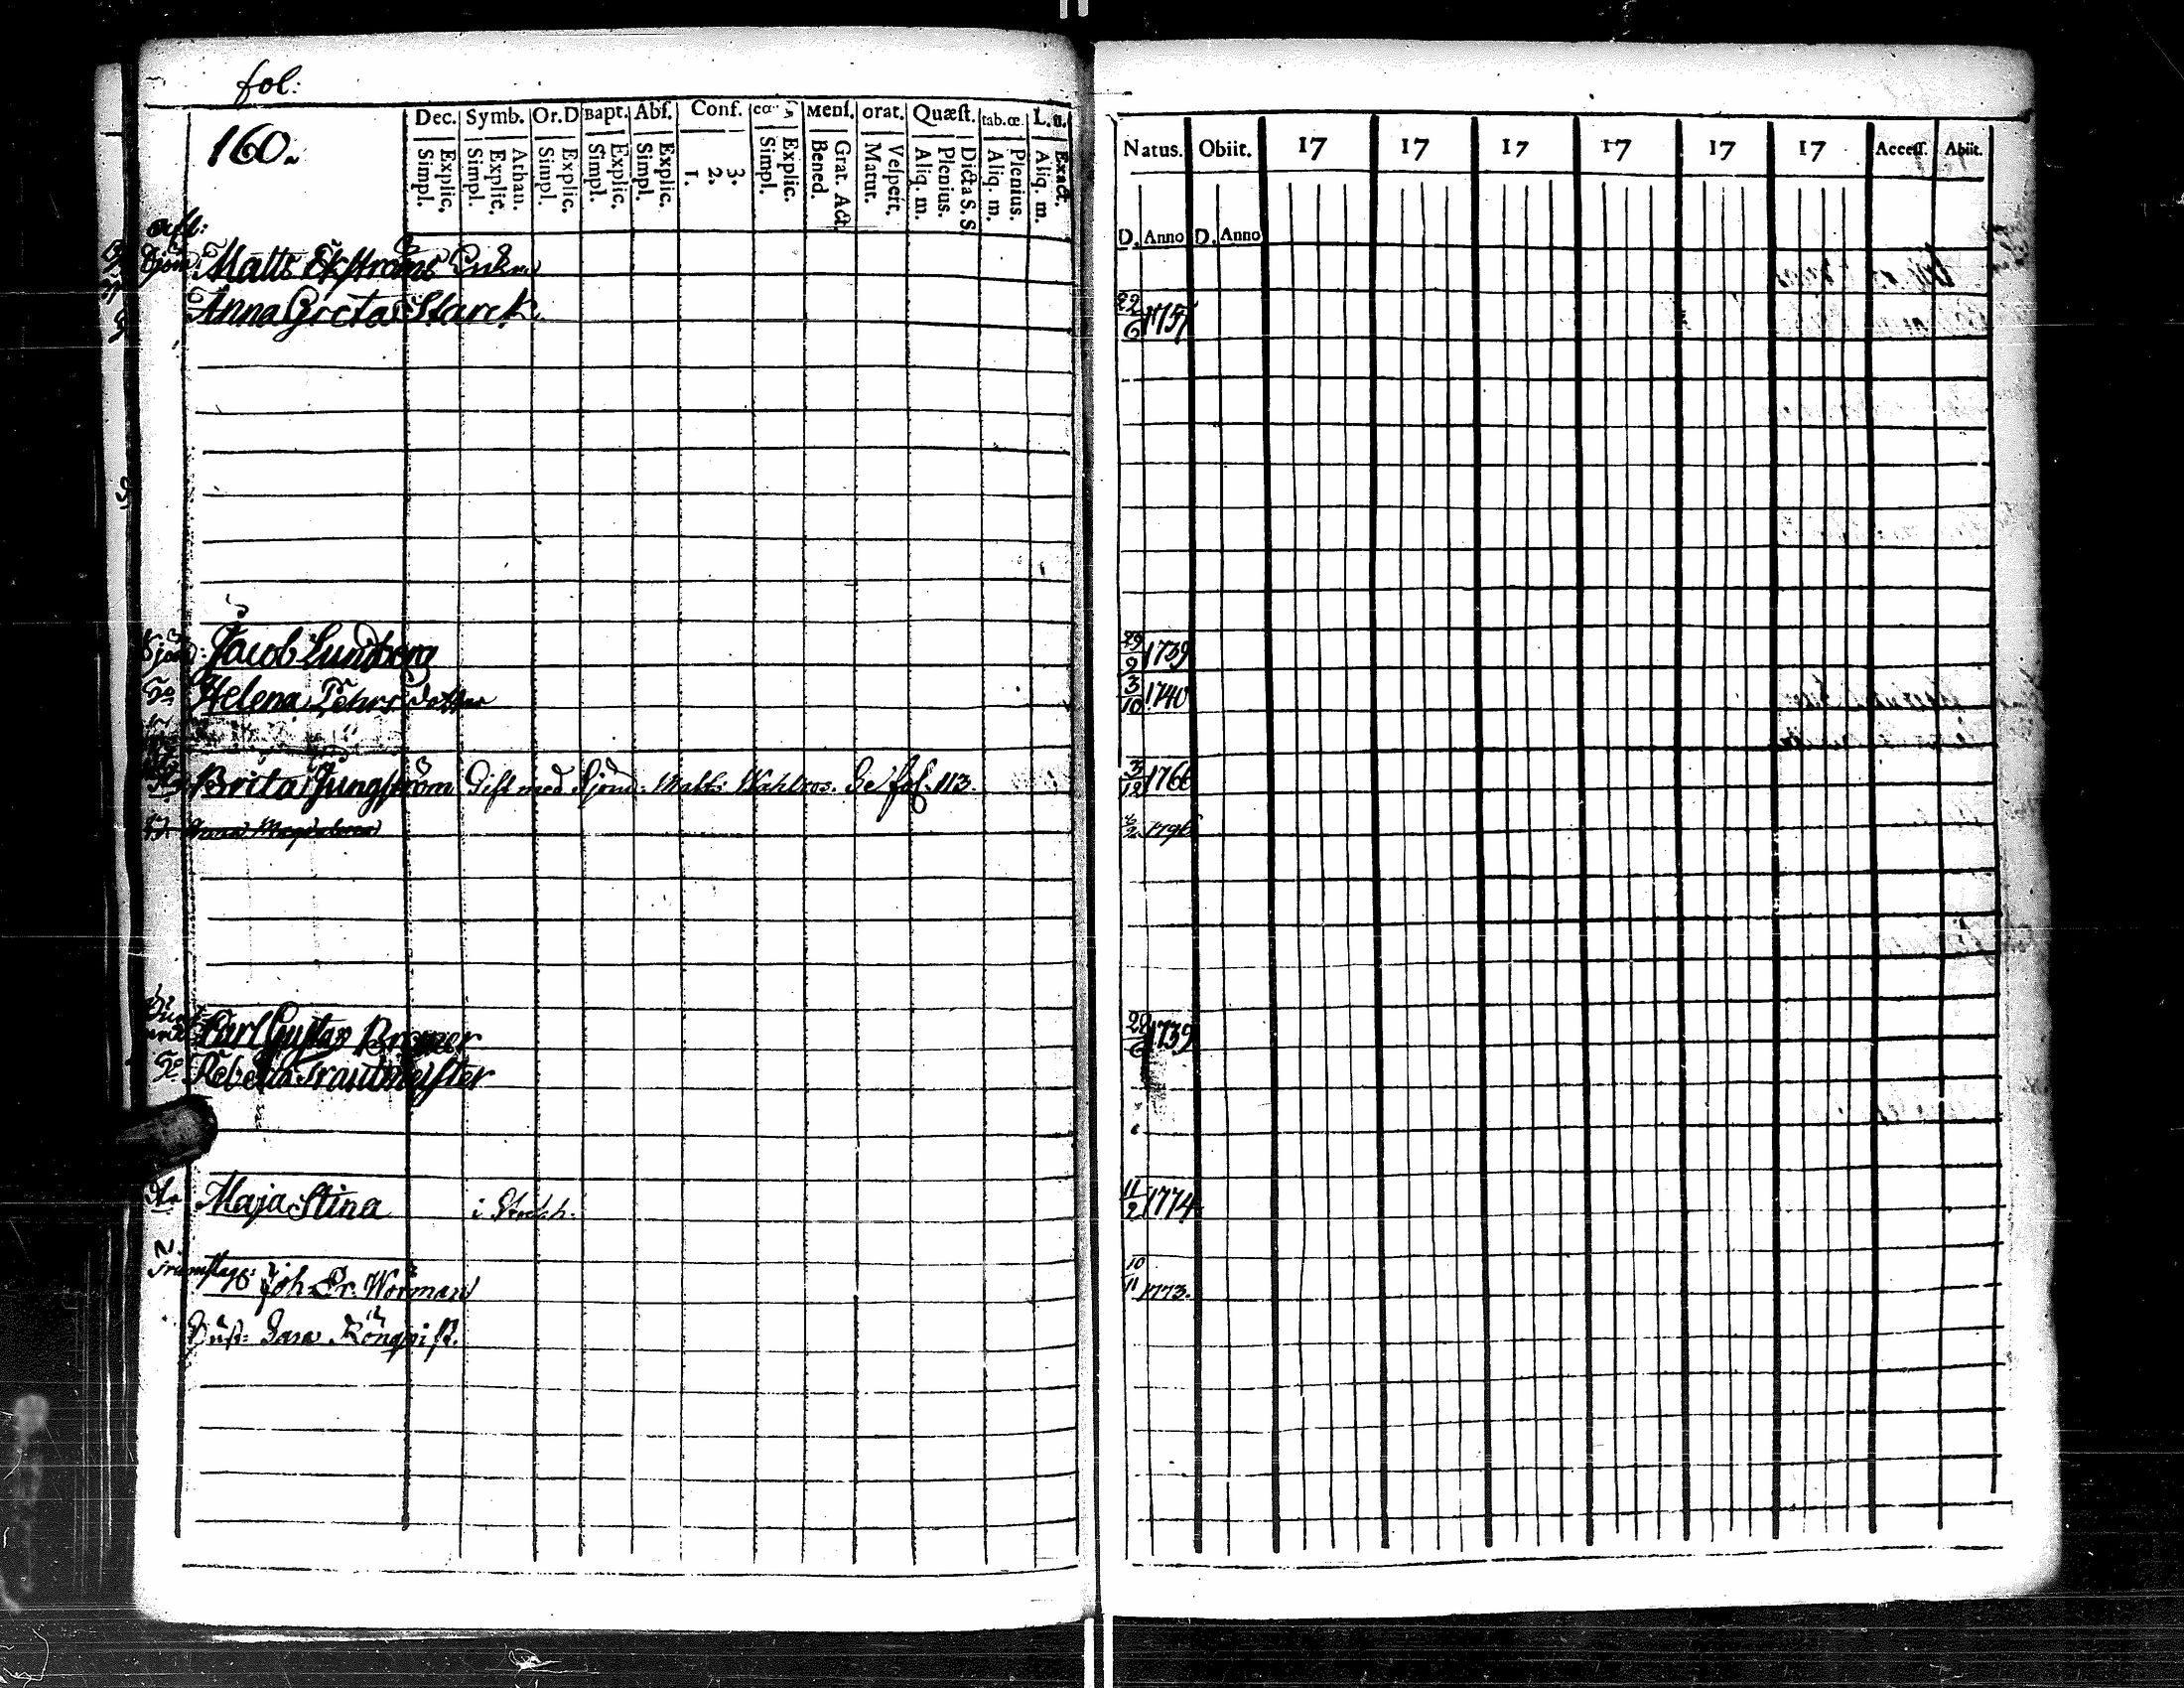 fol:
160.
Dec. Symb. Or. D Bapt. Abſ. Conf. Menſ. orat. Quæſt. tab. œ. L. u.
Simpl. Explic. Simpl. Explic. Athan. Simpl. Explic. Simpl. Explic. Simpl. Explic. 1. 2. 3. Simpl. Explic. Bened. Grat. Act. Matut. Veſpert. Aliq. m. Plenius. Dicta S. S. Aliq. m. Plenius. Aliq. m. Exact.
Natus. Obiit. 17 17 17 17 17 17 Acceſſ. Abiit.
D. Anno D. Anno
Matts Ekströms Enka
Anna Greta Starck 22/6 1757
Sjöm: Jacob Lundberg 29/9 1739
Helena Pehrs dotter 3/10 1740
Brita Ljungström Gift med Sjöm: Matts Wahlros. Se fol. 113. 3/12 1766
Anna Magdalena 1796
Carl Gustav Bromer 28/6 1739
Rebecka Trautmeister
Maja Stina i Stockh. 11/2 1774.
Trumslag: Joh. Er. Norman 10/11 1773.
Hust: Sara Rönqvist.